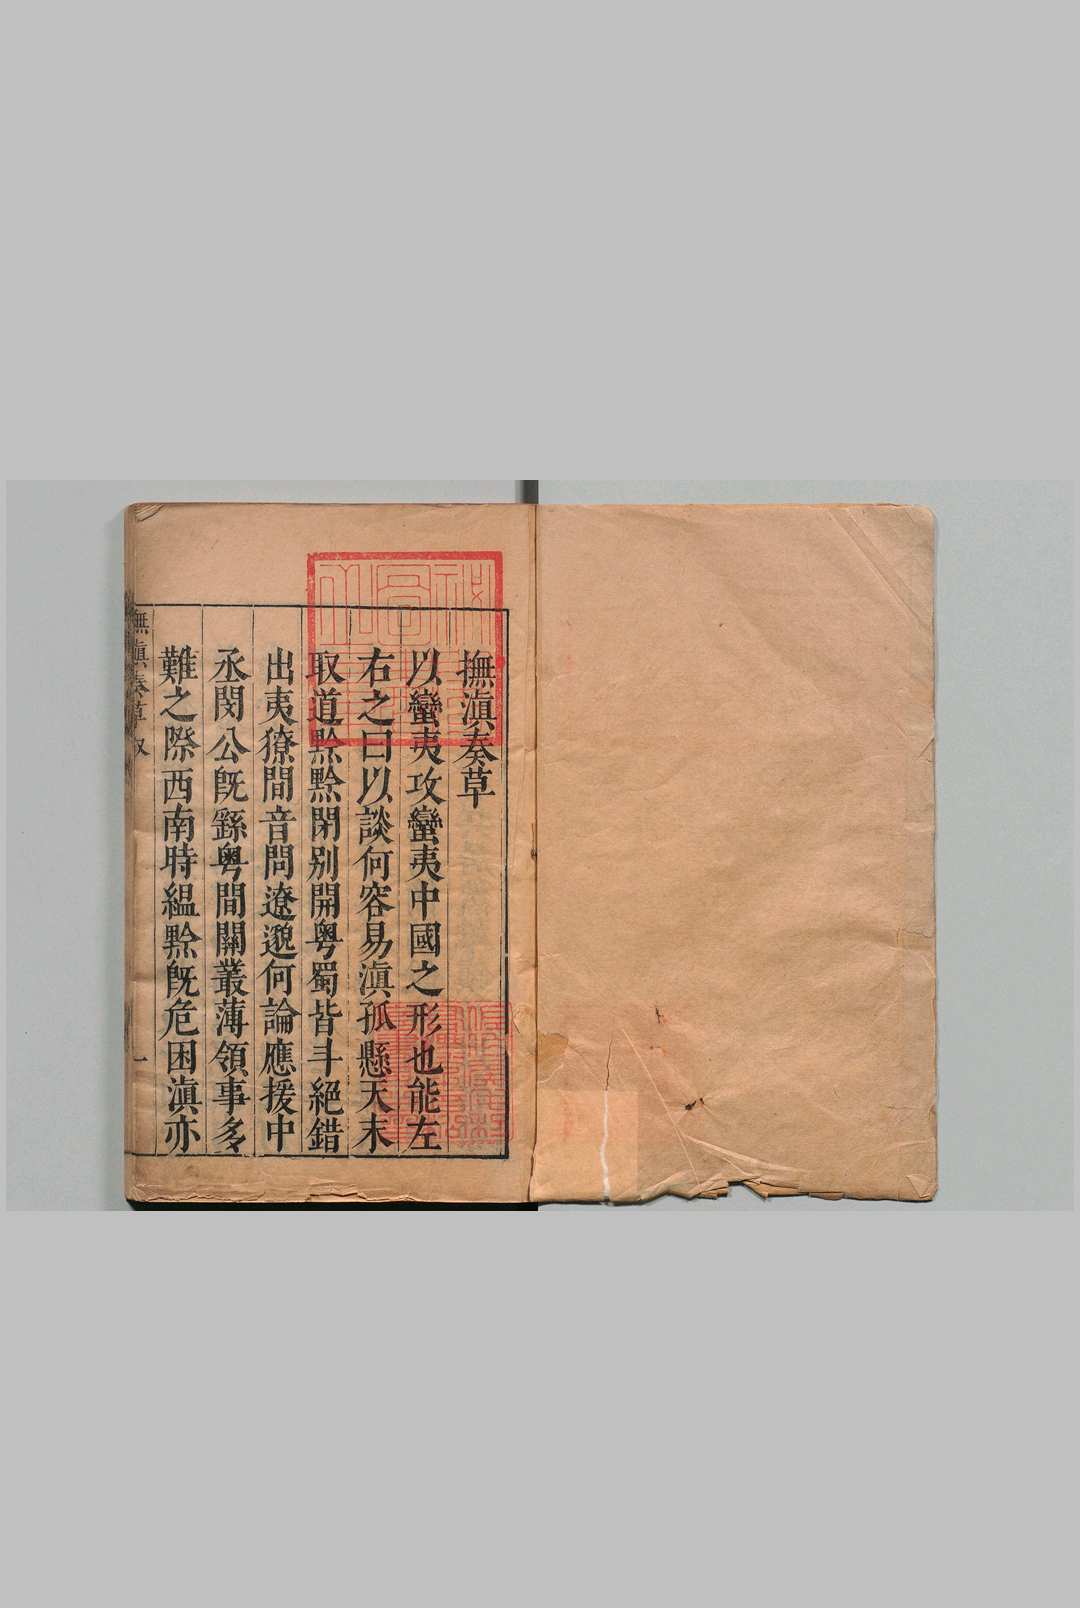 撫滇奏草
以蠻夷攻蠻夷中國之形也能左
右之曰以談何容易滇孤懸天末
取道黔黔閉別開粵蜀皆斗絕錯
出夷獠間音問遼邈何論應援中
丞閔公旣繇粵間關叢薄領事多
難之際西南時縕黔旣危困滇亦
撫滇奏草 叙
一